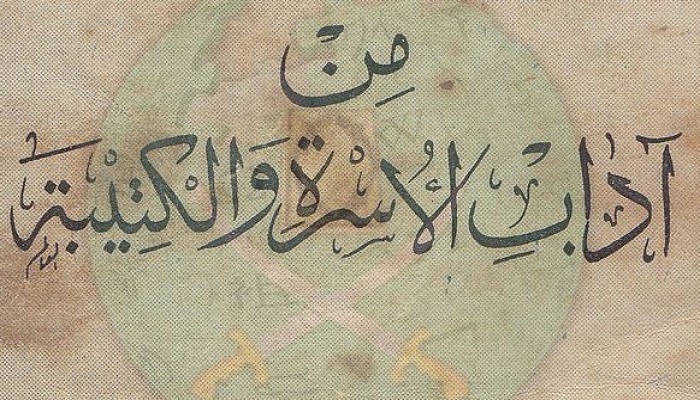 مِنْ
آدَابِ الأُسْرَةِ وَالكَتِيْبَة